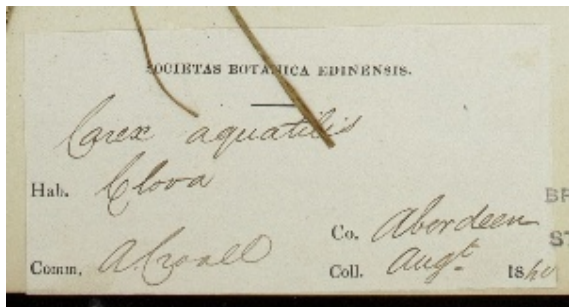 SOCIETAS BOTANICA EDINENSIS.
Carex aquatilis
Hab. Clova
Co. Aberdeen
Comm. A. Croall
Coll. Augt. 18